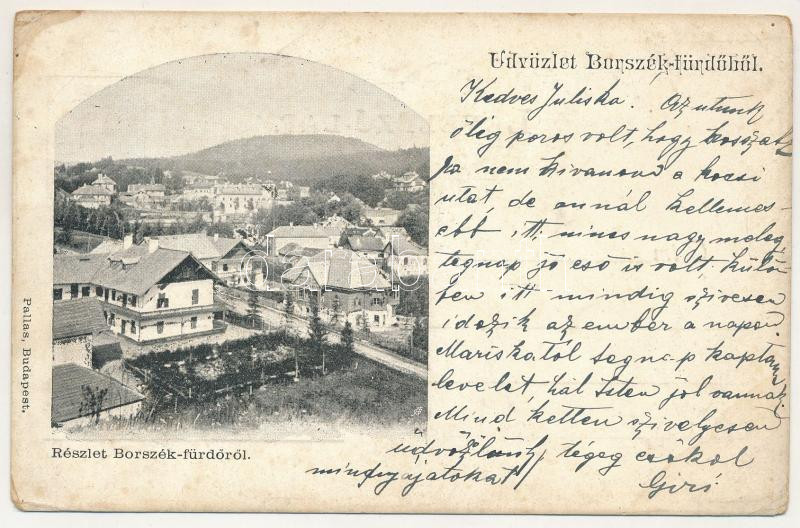 Üdvözlet Borszék-fürdőből.
Kedves Juliska. Az utunk
elég poros volt, hogy
ja nem kivanom a kocsi
utat, de annál kellemes-
ebb itt, nincs nagy meleg
tegnap jó eső is volt, külön-
ben itt mindig szivesen
időzik az ember a napon.
Mariskától tegnap kaptam
levelet, hál Isten jól vannak
Mind ketten szivelyesen
üdvözlünk, téged csókol
mindnyájatokat Giri
Részlet Borszék-fürdőről.
Pallas, Budapest.